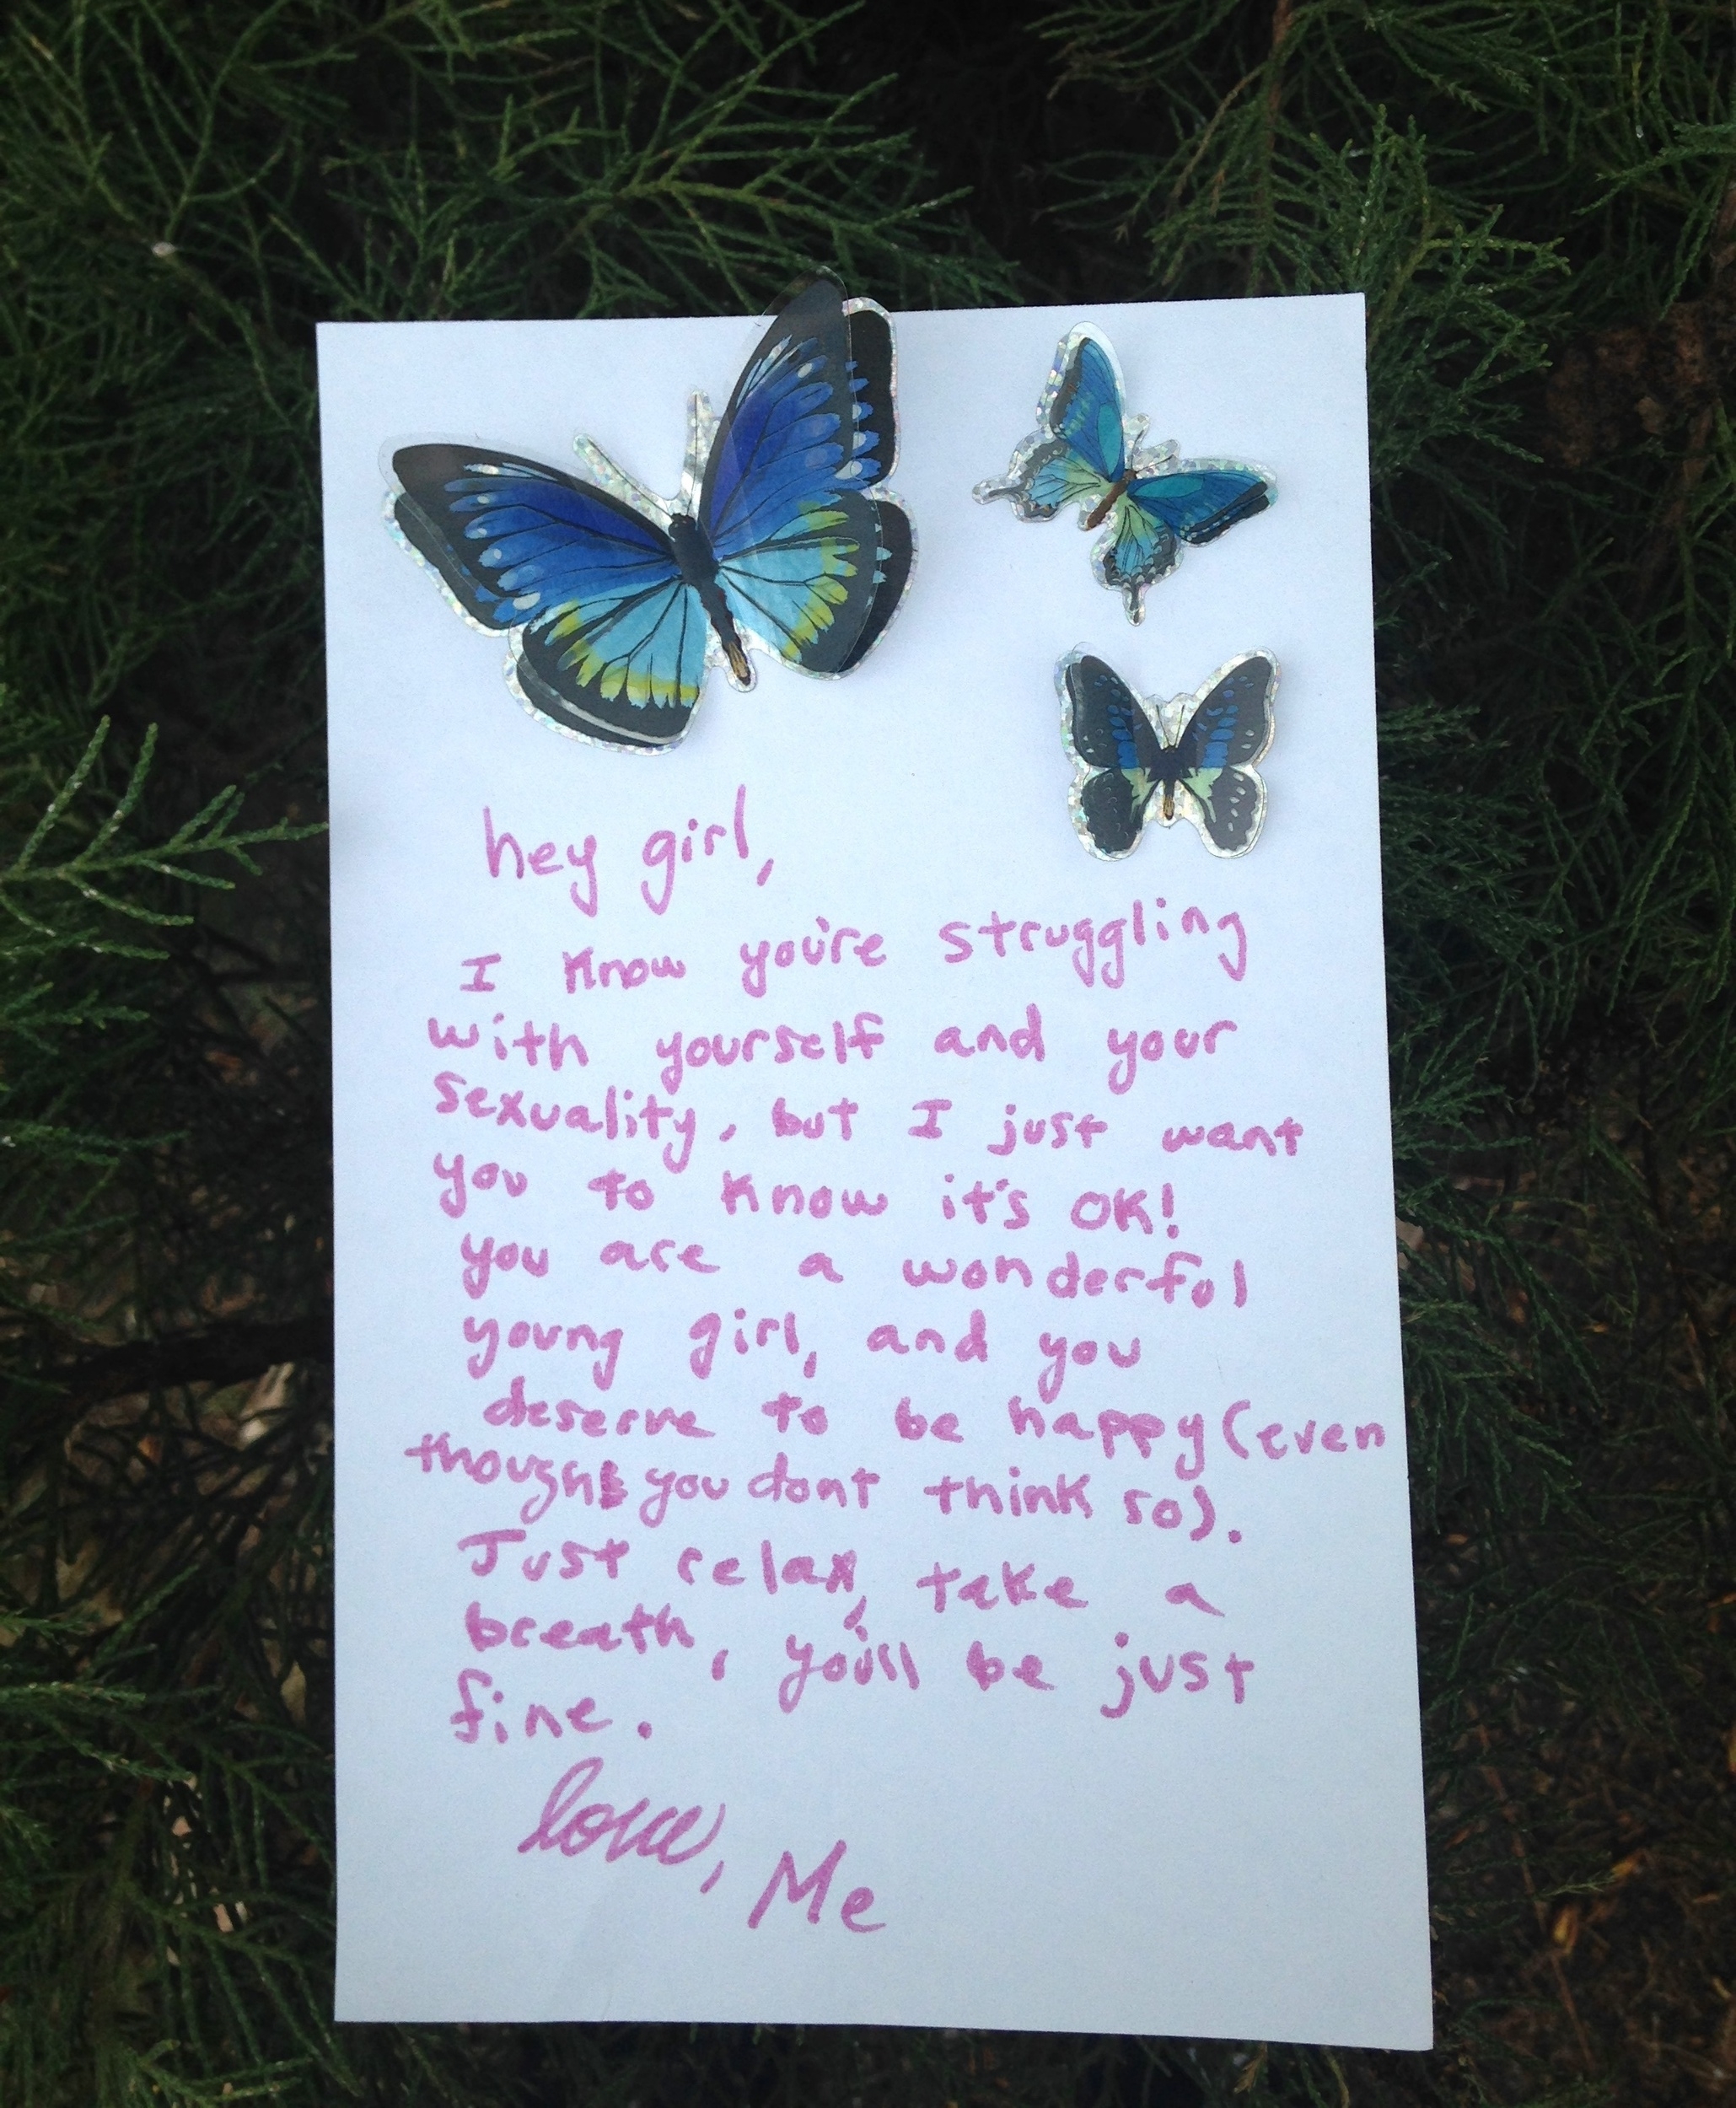 hey girl,
I know you're struggling
with yourself and your
sexuality, but I just want
you to know it's OK!
you are a wonderful
young girl, and you
deserve to be happy (even
though you dont think so).
Just relax, take a
breath, you'll be just
fine.
love, Me